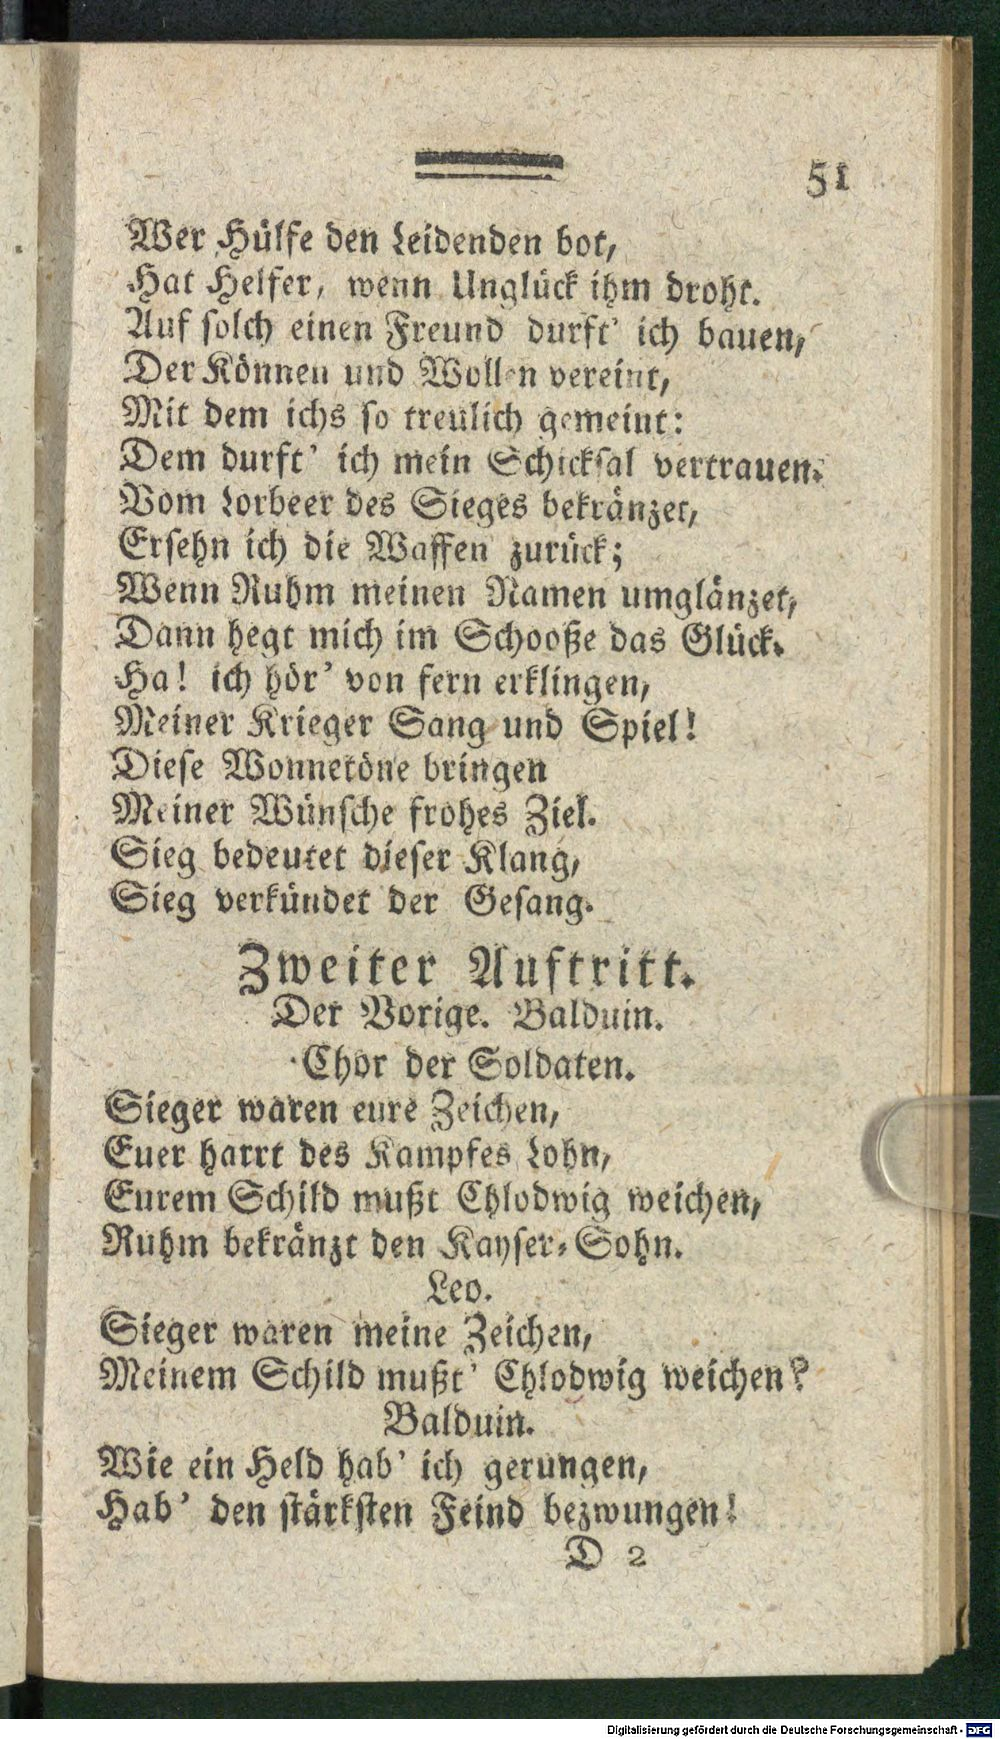 51
Wer Hülfe den Leidenden bot,
Hat Helfer, wenn Unglück ihm droht.
Auf solch einen Freund durft' ich bauen,
Der Können und Wollen vereint,
Mit dem ichs so treulich gemeint:
Dem durft' ich mein Schicksal vertrauen.
Vom Lorbeer des Sieges bekränzet,
Ersehn ich die Waffen zurück;
Wenn Ruhm meinen Namen umglänzet,
Dann hegt mich im Schooße das Glück.
Ha! ich hör' von fern erklingen,
Meiner Krieger Sang und Spiel!
Diese Wonnetöne bringen
Meiner Wünsche frohes Ziel.
Sieg bedeutet dieser Klang,
Sieg verkündet der Gesang.
Zweiter Auftritt.
Der Vorige. Balduin.
Chor der Soldaten.
Sieger waren eure Zeichen,
Euer harrt des Kampfes Lohn,
Eurem Schild mußt Chlodwig weichen,
Ruhm bekränzt den Kayser-Sohn.
Leo.
Sieger waren meine Zeichen,
Meinem Schild mußt' Chlodwig weichen?
Balduin.
Wie ein Held hab' ich gerungen,
Hab' den stärksten Feind bezwungen!
D 2
Digitalisierung gefördert durch die Deutsche Forschungsgemeinschaft - DFG